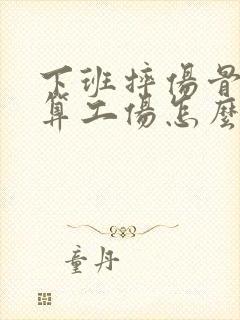 下班摔傷骨
算工傷怎麼
童丹